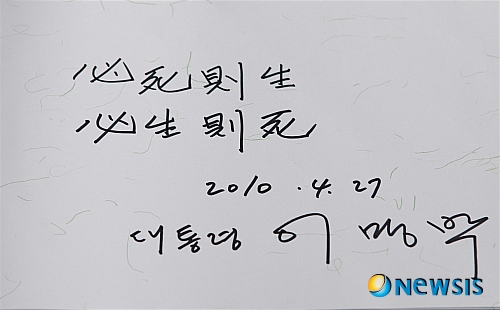 必死則生
必生則死
2010.4.27
대통령 이명박
newsis